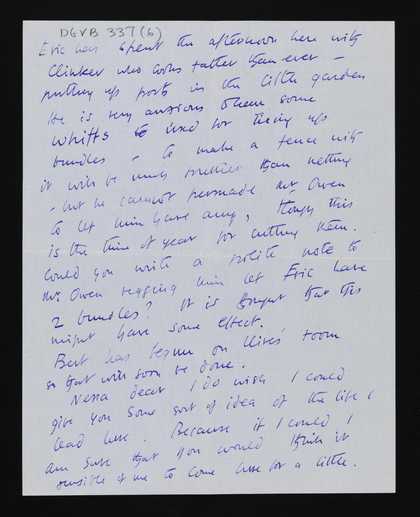 DGVB 337 (6)
Eric has spent the afternoon here with
Clinker who looks fatter than ever –
putting up posts in the little garden
He is very anxious to have some
to used for tieing up
bundles – to make a fence with
it will be much prettier than netting
– but he cannot persuade Mr Owen
to let him have any, though this
is the time of year for cutting them.
Could you write a polite note to
Mr Owen begging him let Eric have
2 bundles? It is thought that this
might have some effect.
Bert has begun on Clives' room
so that will soon be done.
Nessa dear I do wish I could
give you some sort of idea of the life I
lead here. Because if I could I
am sure that you would think it
sensible of me to come here for a little.